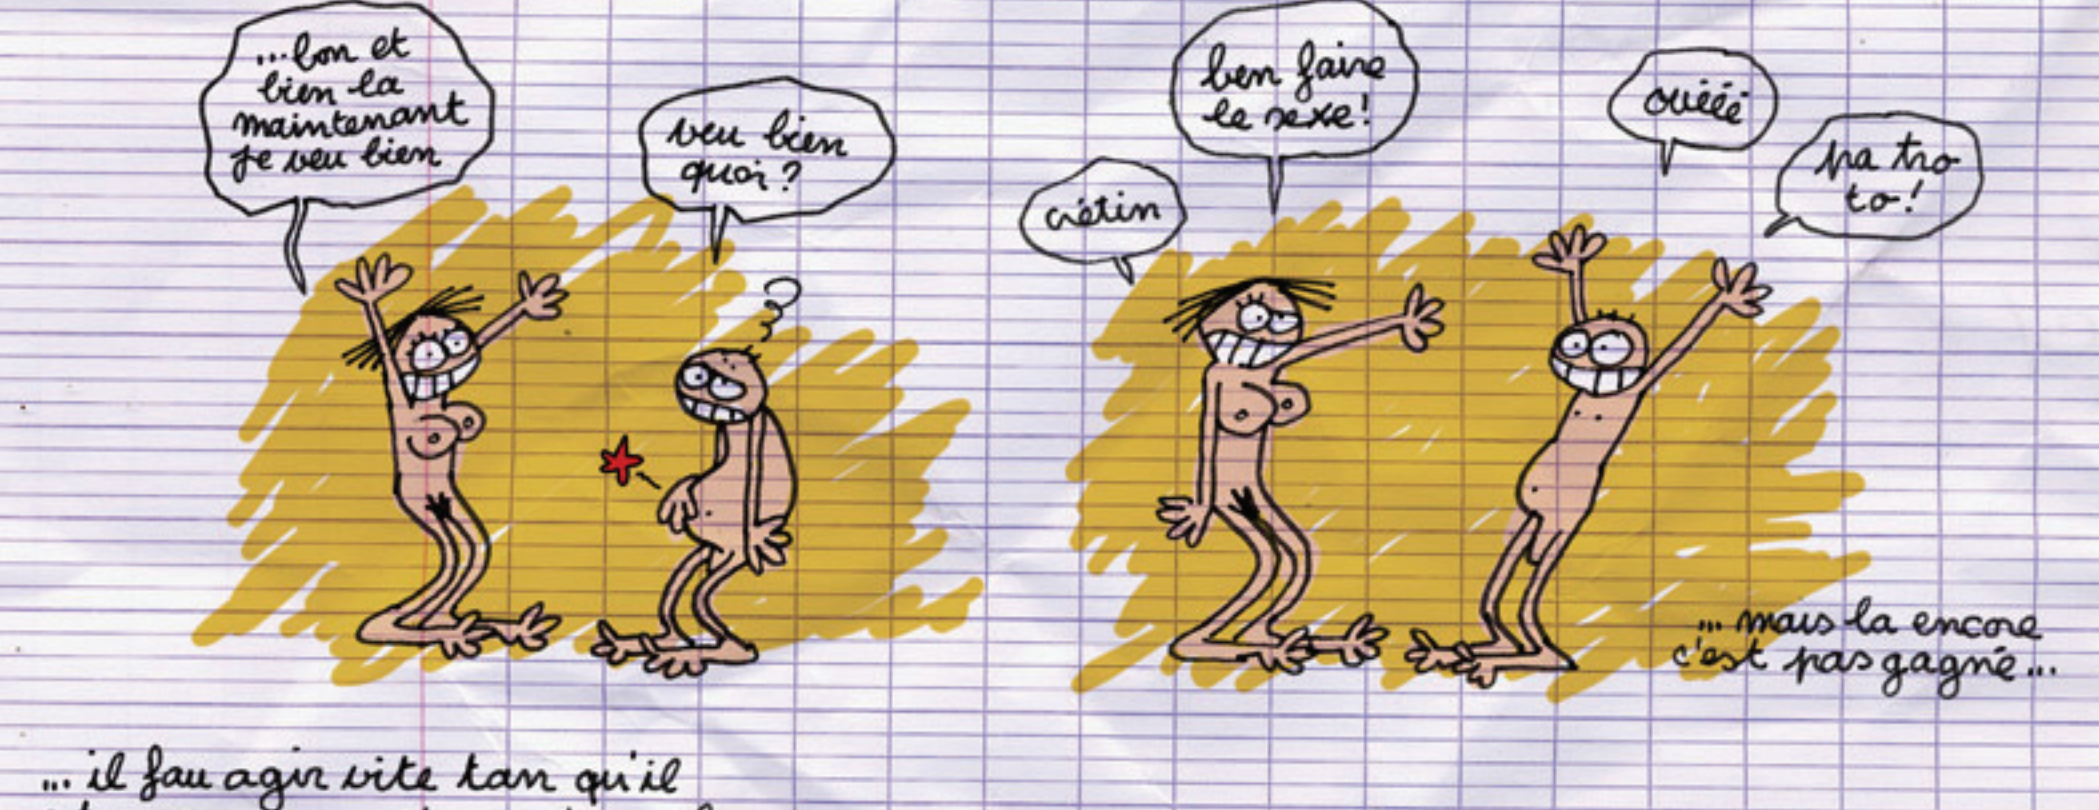 ...bon et
bien la
maintenant
je veu bien
veu bien
quoi?
crétin
ben faire
le sexe!
ouééé
pa tro
to!
... mais la encore
c'est pas gagné...
... il fau agir vite tan qu'il